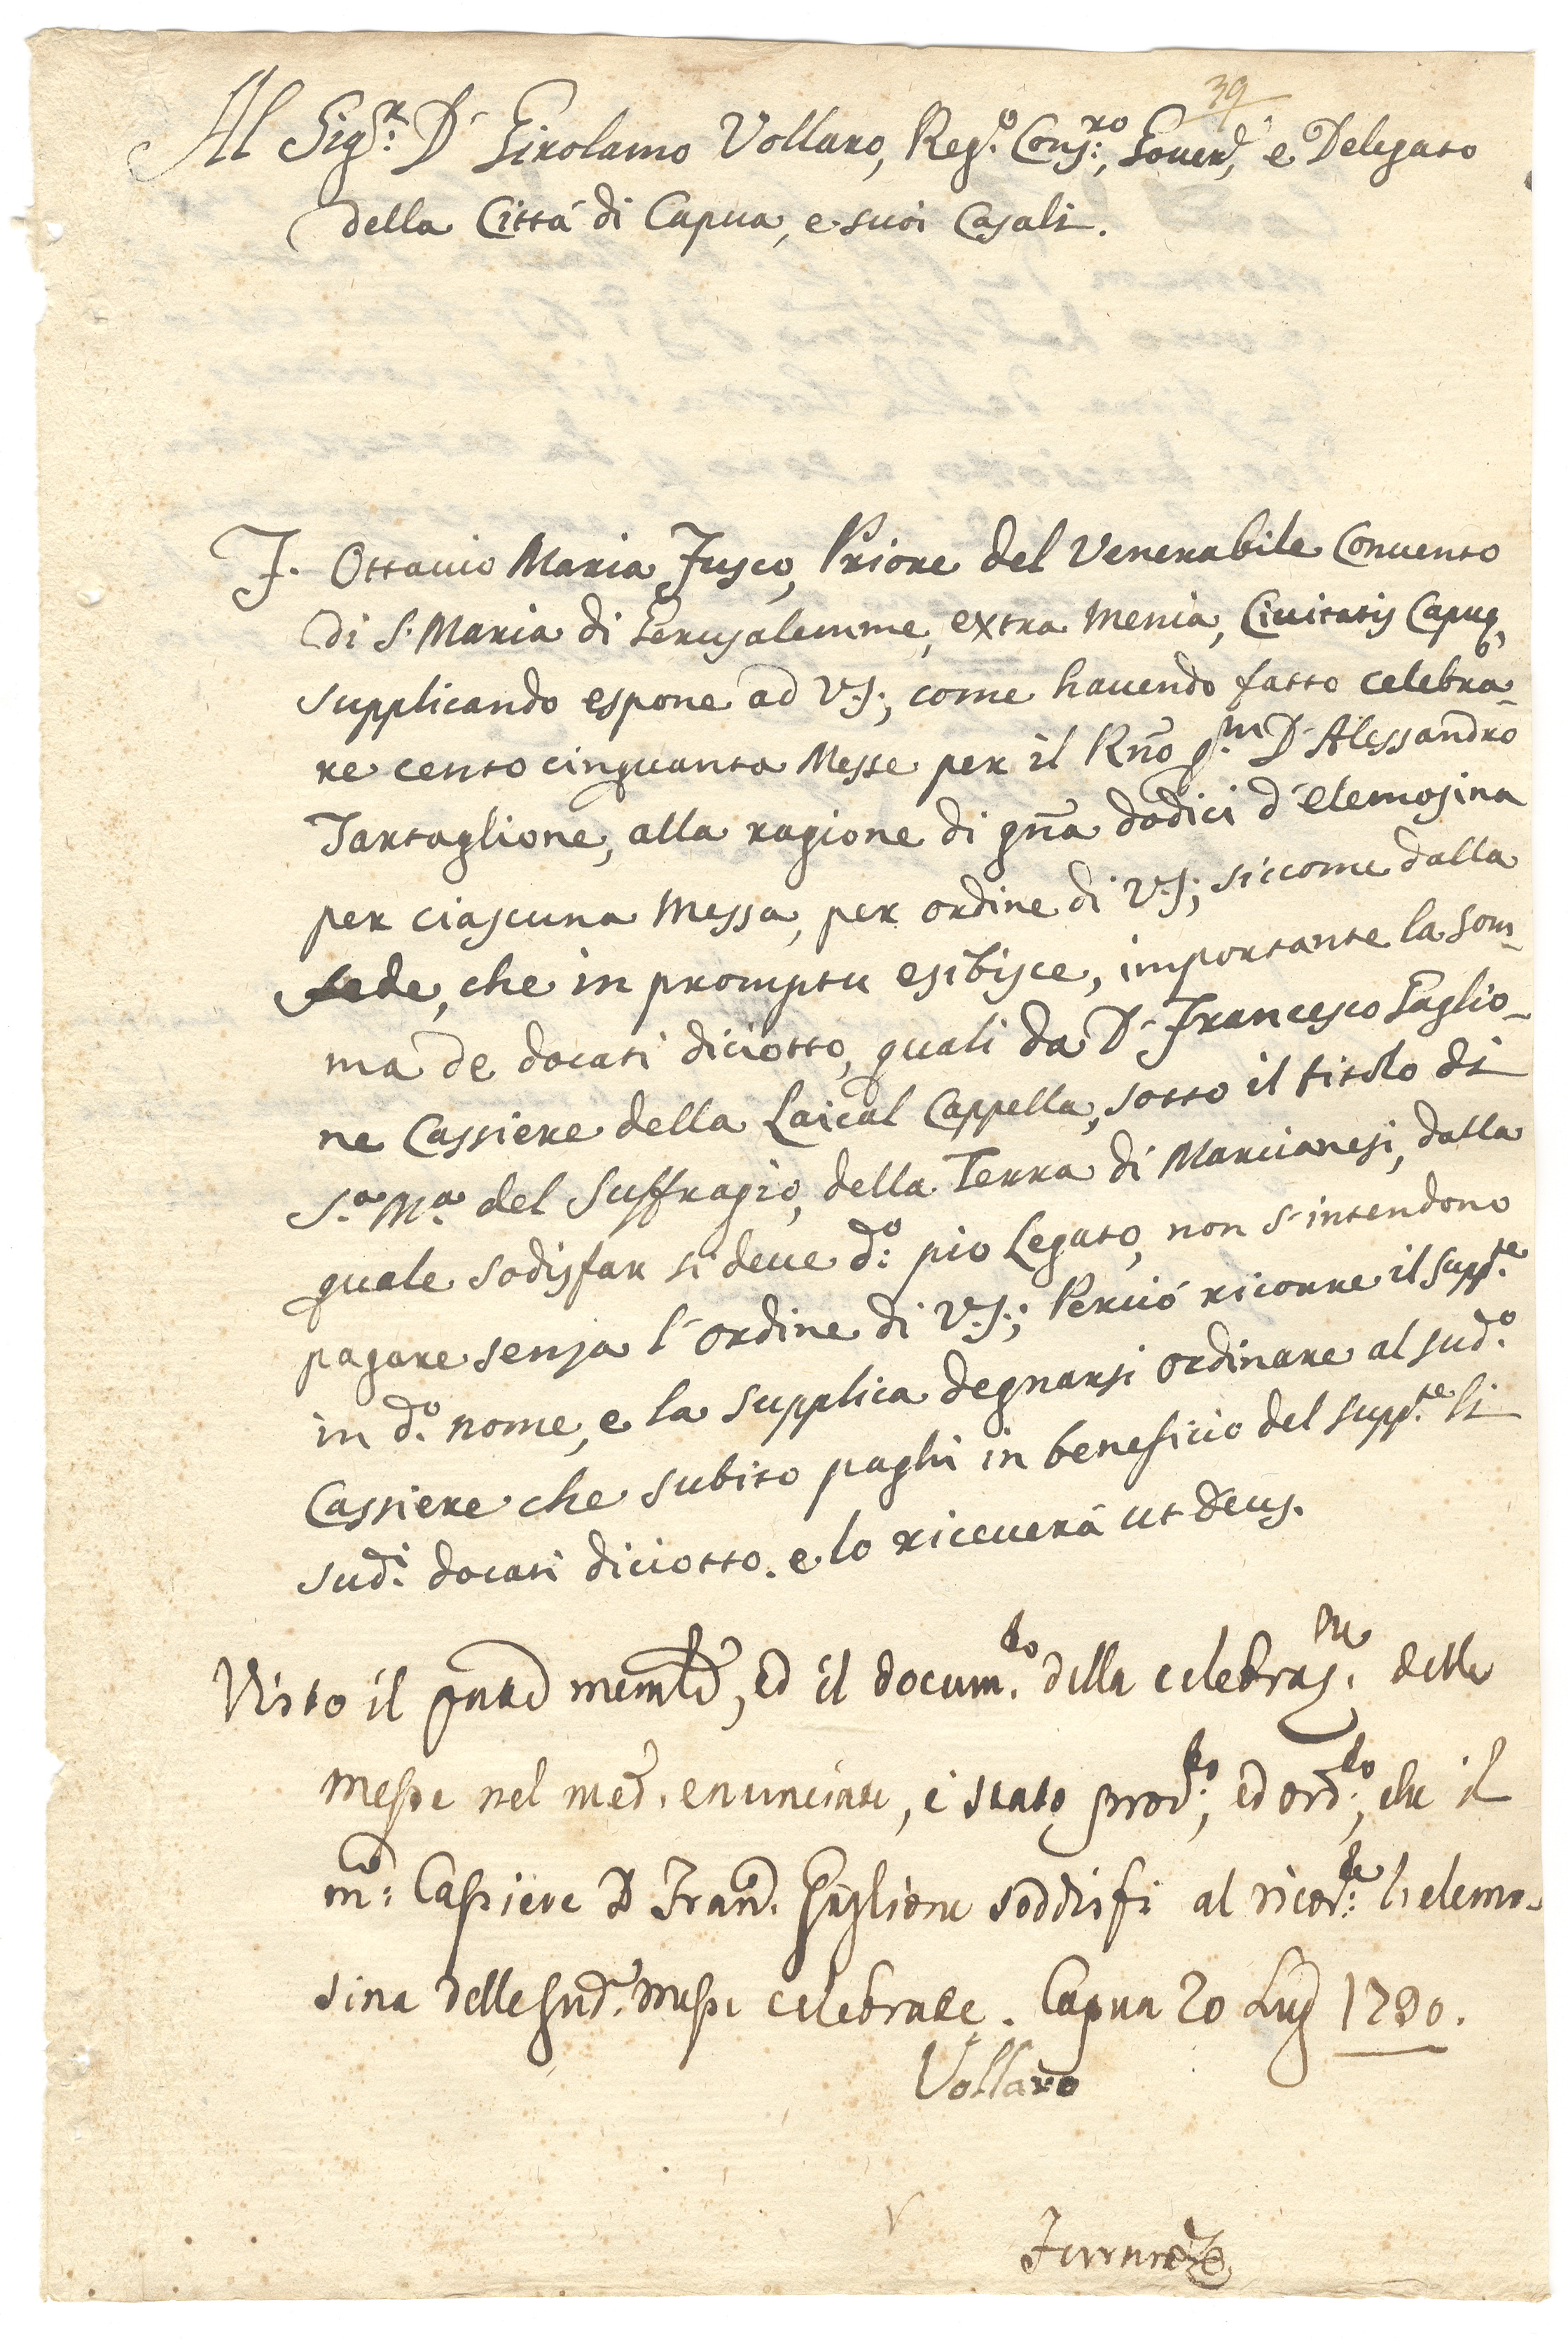 39
Al Sig.r D. Girolamo Vollaro, Reg.o Cons.ro, Gover.e, e Delegato
della Cittá di Capua, e suoi Casali.
F. Ottavio Maria Fusco, Priore del Venerabile Convento
di S. Maria di Gerusalemme, extra menia, Civitatis Capuę,
supplicando espone ad V.S:, come havendo fatto celebra-
re cento cinquanta Messe per il Rño q.m D. Alessandro
Tartaglione, alla ragione di gña dodici d'elemosina
per ciascuna Messa, per ordine di V.S:, siccome dalla
fede, che in promptu esibisce, importante la som-
ma de docati diciotto, quali da D. Francesco Gaglio-
ne Cassiere della Laical Cappella, sotto il titolo di
S.a M.a del Suffragio, della Terra di Marcianesi, dalla
quale sodisfar si deve d.o pio Legato, non s'intendono
pagare senza l'ordine di V.S:; Perció ricorre il supp.te
in d.o nome, e la supplica degnarsi ordinare al sud.o
Cassiere che subito paghi in beneficio del supp.te li
sud.i docati diciotto. e lo riceverá ut Deus.
Visto il memle, ed il docum.to della celebraz.ne delle
messe nel med. enunciate, é stato prov.to, ed ord.to, che il
m.co Cassiere D. Fran. Gaglione soddisfi al ricor.te l'elemo-
sina delle sud.e messe celebrate. Capua 20 Lug 1790.
Vollaro